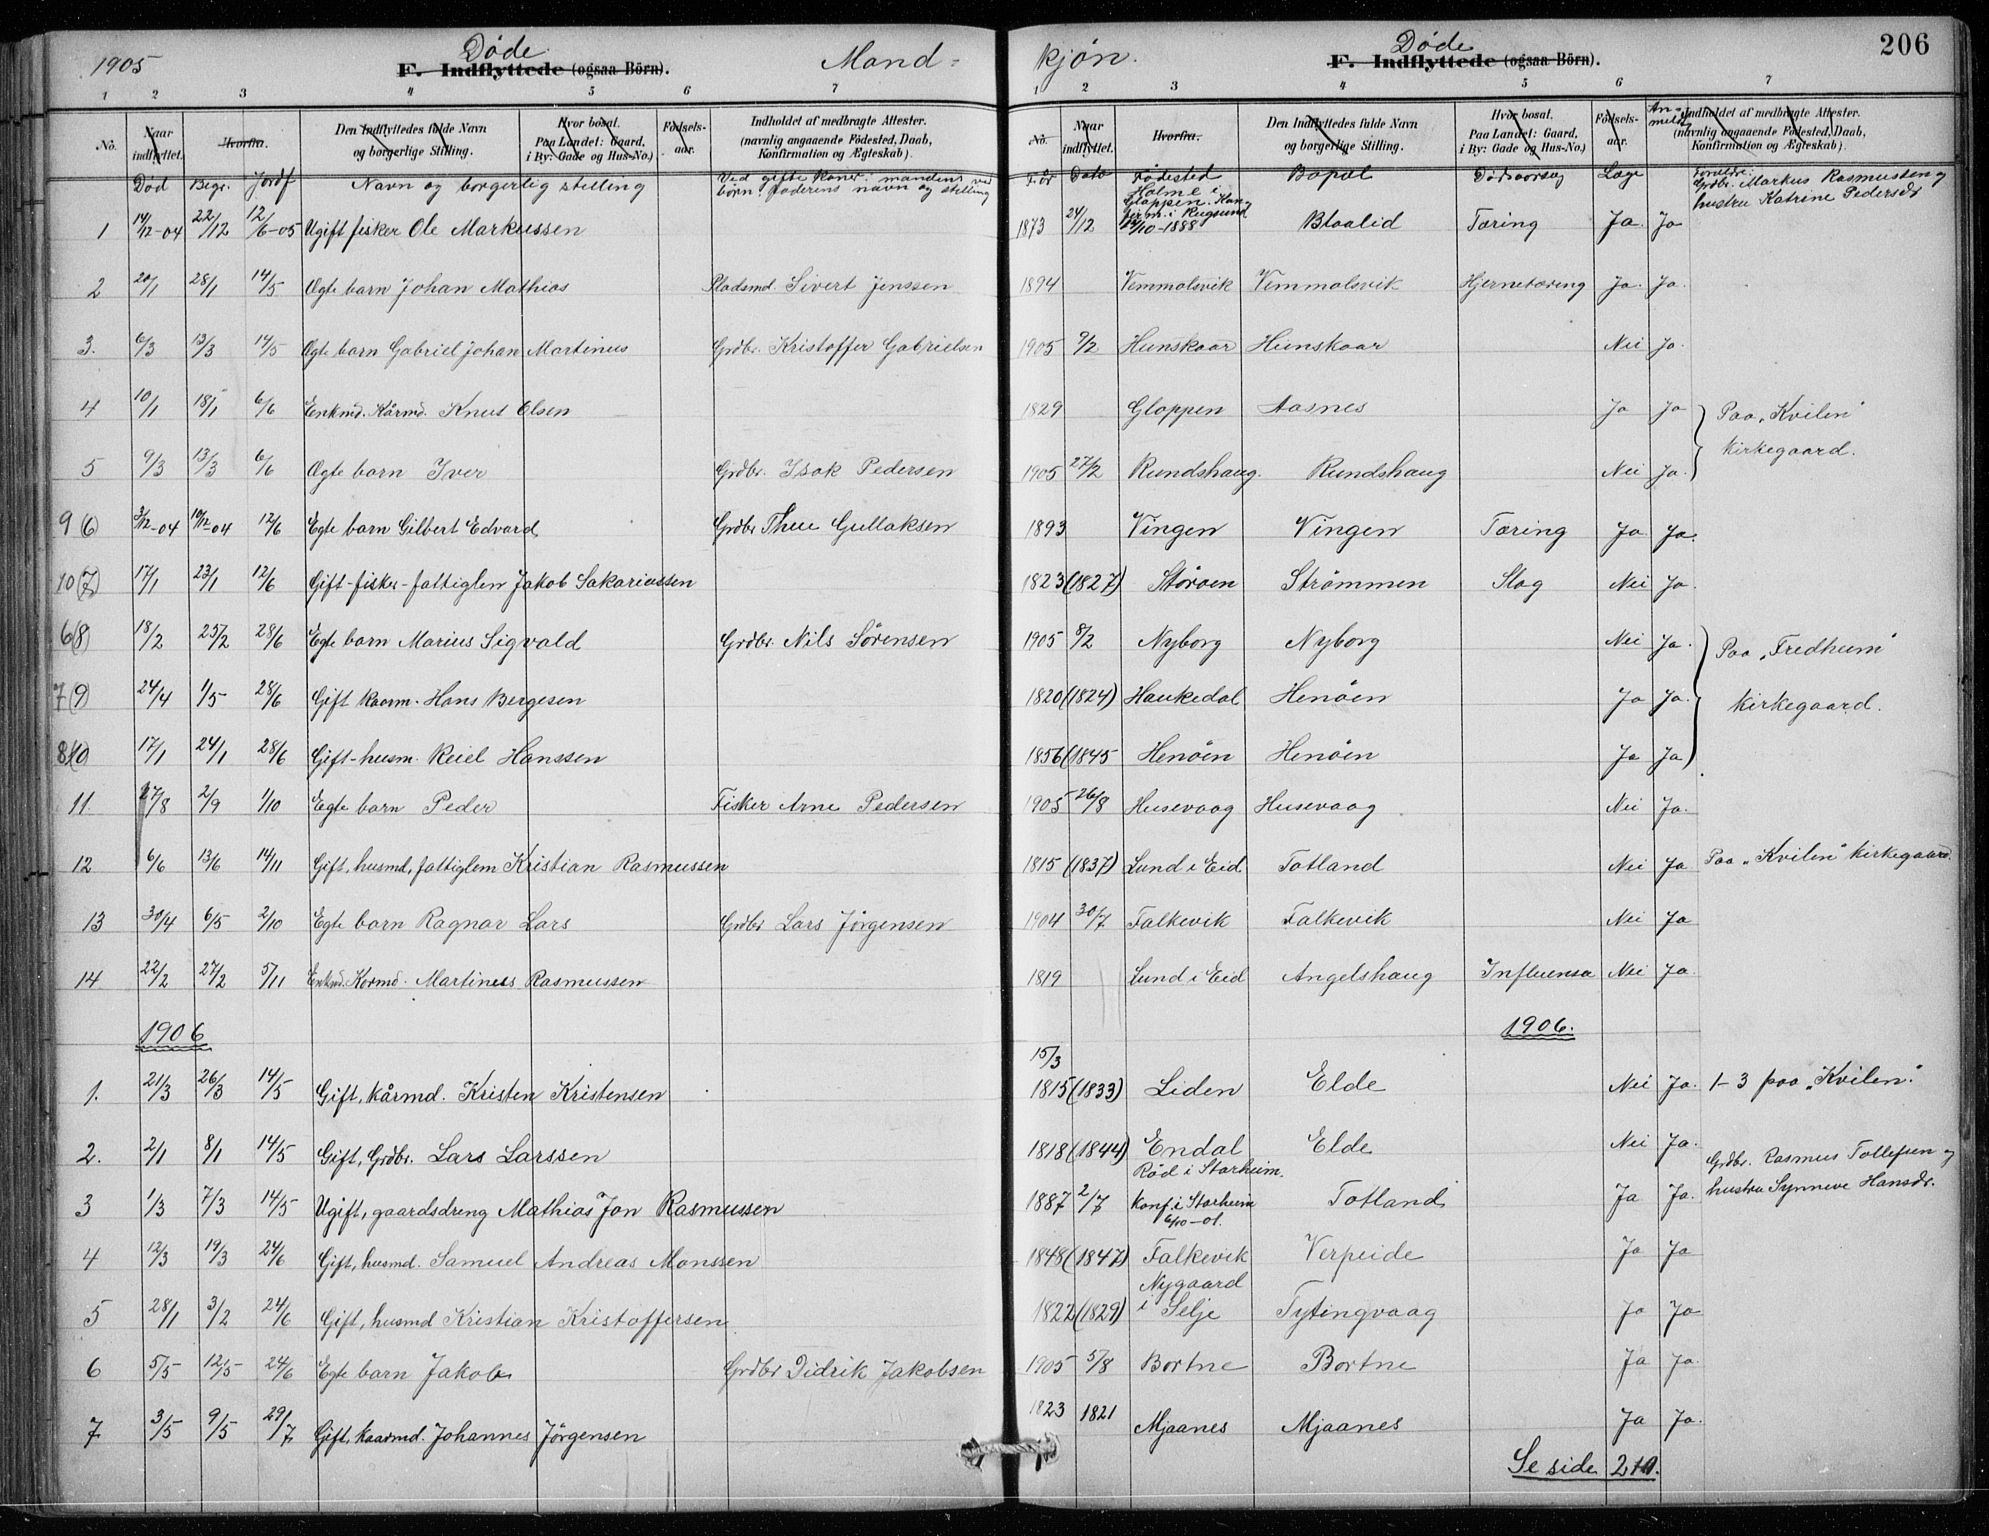 1905
Døde
F. Indflyttede (ogsaa Börn).
Mand-
kjøn.
Døde
F. Indflyttede (ogsaa Börn).
206
1 2 3 4 5 6 7
1 2 3 4 5 6 7
No. Naar indflyttet. Hvorfra. Den Indflyttedes fulde Navn og borgerlige Stilling. Hvor bosat. Paa Landet: Gaard, i By: Gade og Hus-No.) Födsels-aar. Indholdet af medbragte Attester. (navnlig angaaende Födested, Daab, Konfirmation og Ægteskab).
No. Naar indflyttet. Hvorfra. Den Indflyttedes fulde Navn og borgerlige Stilling. Hvor bosat. Paa Landet: Gaard, i By: Gade og Hus-No.) Födsels-aar. An-meldt Indholdet af medbragte Attester. (navnlig angaaende Födested, Daab, Konfirmation og Ægteskab).
Død Begr. Jordf Navn og borgerlig stilling Ved gifte koner: mandens ved børn: faderens navn og stilling
F. år Dato Fødested Bopæl Dødsaarsag Læge
1 14/12-04 22/12 12/6-05 Ugift fisker Ole Markussen 1873 24/12 Holme i Gloppen. Konf. i Rugsund /10-1888 Blaalid Tæring Ja Ja Forældre: Grdbr. Markus Rasmussen og hustru Katrine Pedersdr
2 20/1 28/1 14/5 Ægte barn Johan Mathias Pladsmd. Sivert Jenssen 1894 Vemmelsvik Vemmelsvik Hjernetæring Ja. Ja.
3. 6/3 13/3 14/5 Ægte barn Gabriel Johan Martinus Grdbr. Kristoffer Gabrielsen 1905 9/2 Hunskaar Hunskaar Nei Ja.
4 10/1 18/1 6/6 Enkmd. Kårmd. Knut Olsen 1829 Gloppen Aasnes Ja Ja Paa "Kvilen"
5 9/3 13/3 6/6 Ægte barn Iver Grdbr. Isak Pedersen 1905 27/2 Rundshaug. Rundshaug Nei Ja. kirkegaard.
9(6) 3/12-04 10/12-04 12/6 Egte barn Gilbert Edvard Grdbr Thue Gullaksen 1893 Vingen Vingen Tæring Ja Ja.
10(7) 17/1 23/1 12/6 Gift-fisker-fattiglem Jakob Sakariassen 1823(1827) Støroen Strømmen Slag Nei Ja.
6(8) 18/2 25/2 28/6 Egte barn Marius Sigvald Grdbr. Nils Sørensen 1905 8/2 Nyborg Nyborg Nei Ja. Paa "Fredheim"
7(9) 24/4 1/5 28/6 Gift kaarm. Hans Bergesen 1820(1824) Haukedal Henøen Ja Ja. kirkegaard.
8(10 17/1 24/1 28/6 Gift-husm. Reiel Hanssen 1856(1845 Henøen Henøen Ja Ja
11. 27/8 2/9 1/10 Egte barn Peder Fisker Arne Pedersen 1905 26/8 Husevaag Husevaag Nei Ja.
12 6/6 13/6 14/11 Gift, husmd, fattiglem Kristian Rasmussen 1815 (1837) Lund i Eid Totland Nei Ja Paa "Kvilen" kirkegaard.
13 30/4 6/5 2/10 Egte barn Ragnar Lars Grdbr Lars Jørgensen 1904 30/7 Falkevik Falkevik Nei Ja
14 22/2 27/2 5/11 Enkmd. Kormd. Martines Rasmussen 1819 Lund i Eid Angelshaug Influensa Nei Ja.
1906 1906.
1. 21/3 26/3 14/5 Gift, kårmd. Kristen Kristensen 15/3 1815(1833) Leiden Elde Nei Ja. 1-3 paa "Kvilen".
2. 2/1 8/1 14/5 Gift, Grdbr. Lars Larssen 1818(1844) Endal Elde Nei Ja.
3 1/3 7/3 14/5 Ugift, gaardsdreng Mathias Jon Rasmussen 1887 2/7 Rød i Starheim. Konf. i Starheim 6/10-01. Totland Ja Ja. Grdbr. Rasmus Tollefsen og hustru Synneve Hansdr.
4 12/3 19/3 24/6 Gift, husmd. Samuel Andreas Monssen 1848(1847) Falkevik Verpeide Ja Ja
5 28/1 3/2 24/6 Gift, husmd Kristian Kristoffersen 1822(1829) Nygaard i Selje Tytingvaag Ja Ja
6 5/5 12/5 24/6 Egte barn Jakob Grdbr Didrik Jakobsen 1905 5/8 Bortne Bortne Ja Ja.
7 3/5 9/5 29/7 Gift, kaarmd. Johannes Jørgensen 1823 1821 Mjaanes Mjaanes Ja Ja.
Se side 210.